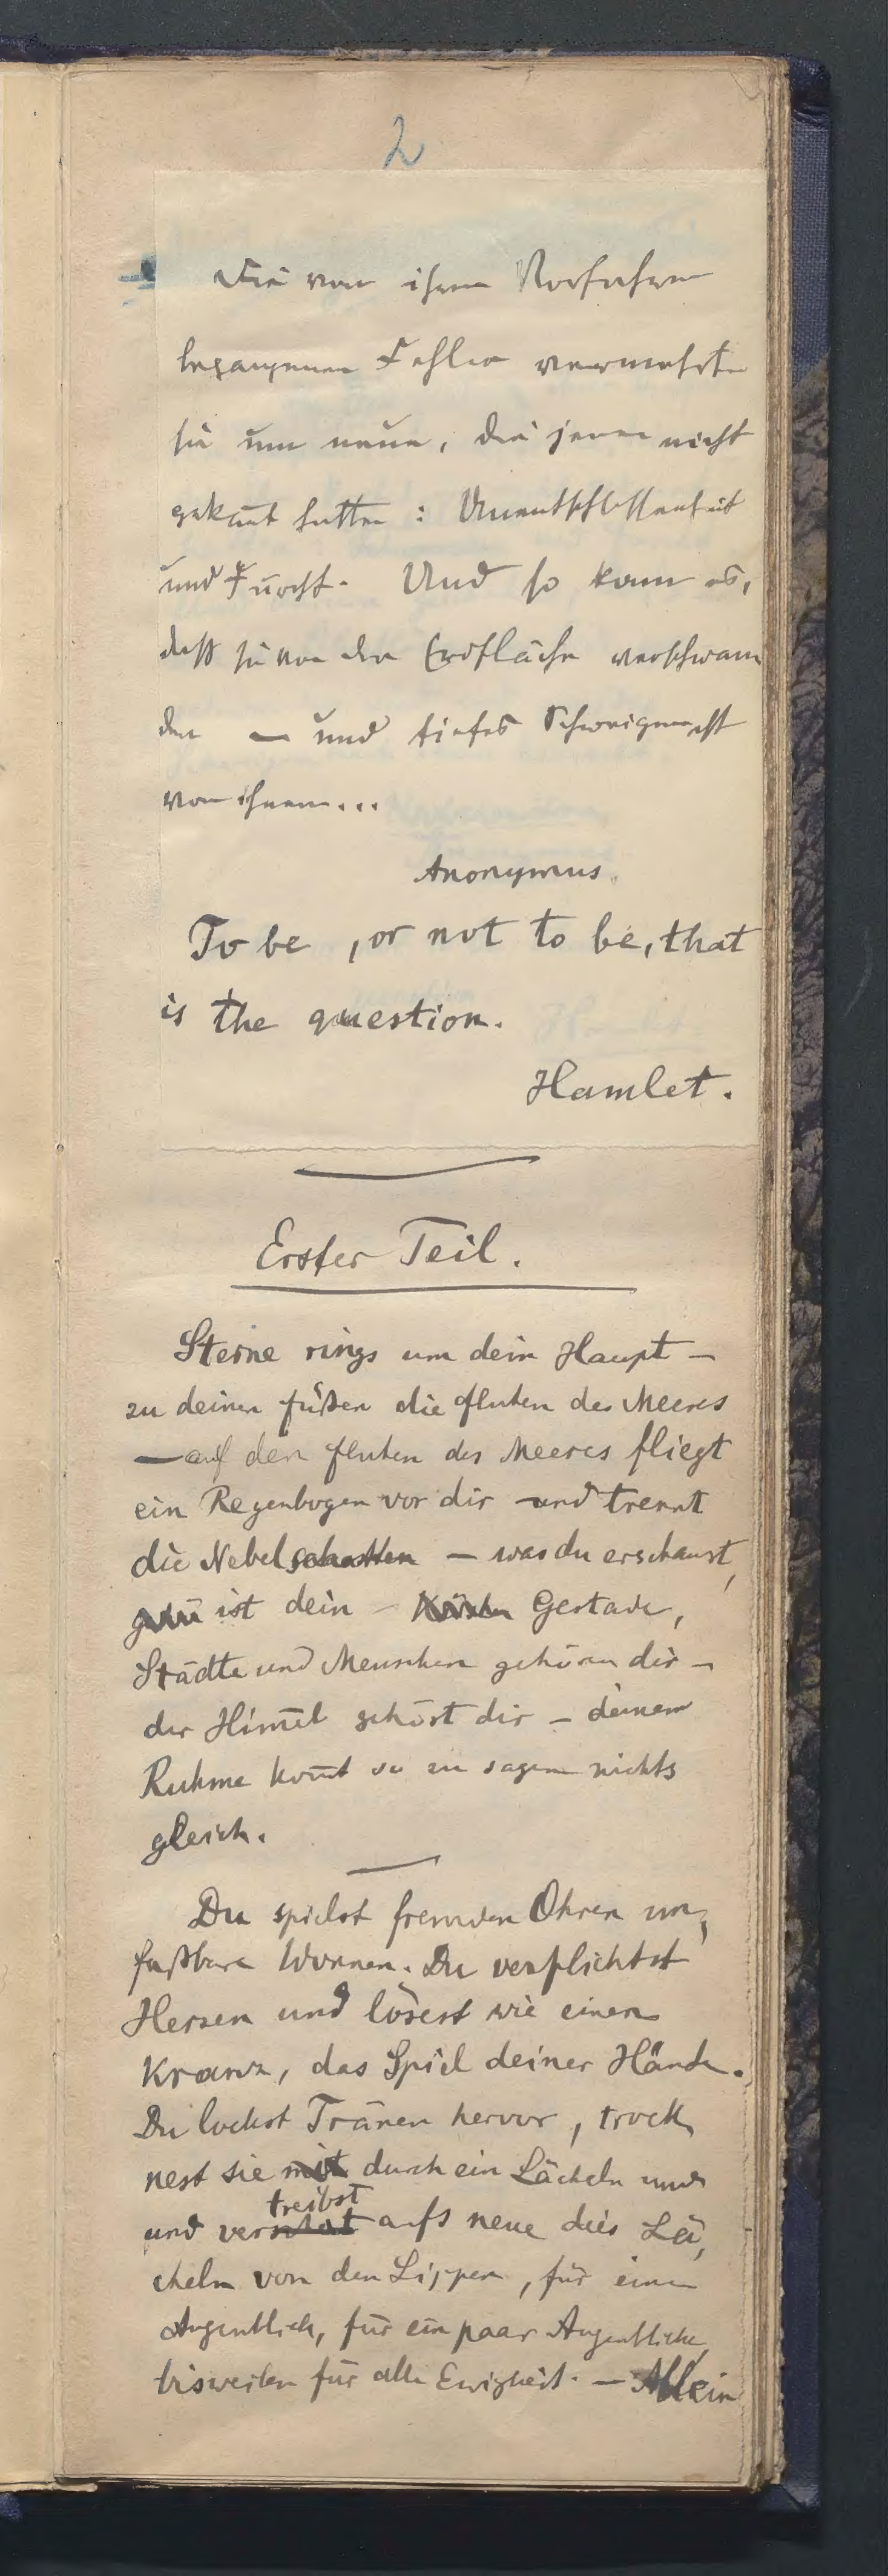 2
Die von ihren Vorfahren
begangenen Fehler vermehrten
sie um neue, die jene nicht
gekannt hatten: Unentschlossenheit
und Furcht. Und so kam es,
dass sie von der Erdfläche verschwan
den — und tiefes Schweigen ist
von ihnen...
Anonymus.
To be, or not to be, that
is the question.
Hamlet.
Erster Teil.
Sterne rings um dein Haupt —
zu deinen füßen die fluten des Meeres
— auf den fluten des Meeres fliegt
ein Regenbogen vor dir und trennt
die Nebel schatten — was du erschaust,
ist dein — Gestade,
Städte und Menschen gehören dir —
der Him̅el gehört dir — deinem
Ruhme kom̅t so zu sagen nichts
gleich.
Du spielst fremden Ohren un,
faßbare Wonnen. Du verflichtst
Herzen und lösest wie einen
Kranz, das Spiel deiner Hände.
Du lockst Tränen hervor, trock,
nest sie mit durch ein Lächeln und
treibst
und aufs neue dies Lä,
cheln von den Lippen, für einen
Augenblick, für ein paar Augenblicke,
bisweilen für alle Ewigkeit. — Allein